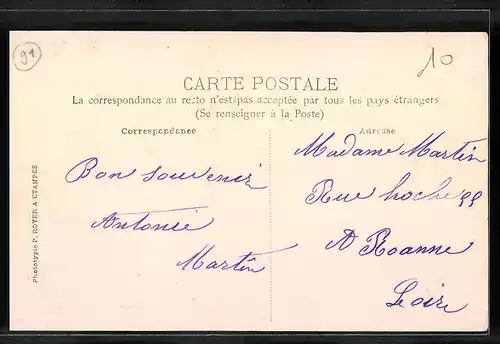 91
10
CARTE POSTALE
La correspondance au recto n'est pas acceptée par tous les pays étrangers
(Se renseigner à la Poste)
Correspondance
Bon souvenir
Antonie
Martin
Adresse
Madame Martin
Rue hoche 99
A Roanne
Loire
Phototypie P. ROYER A ETAMPES